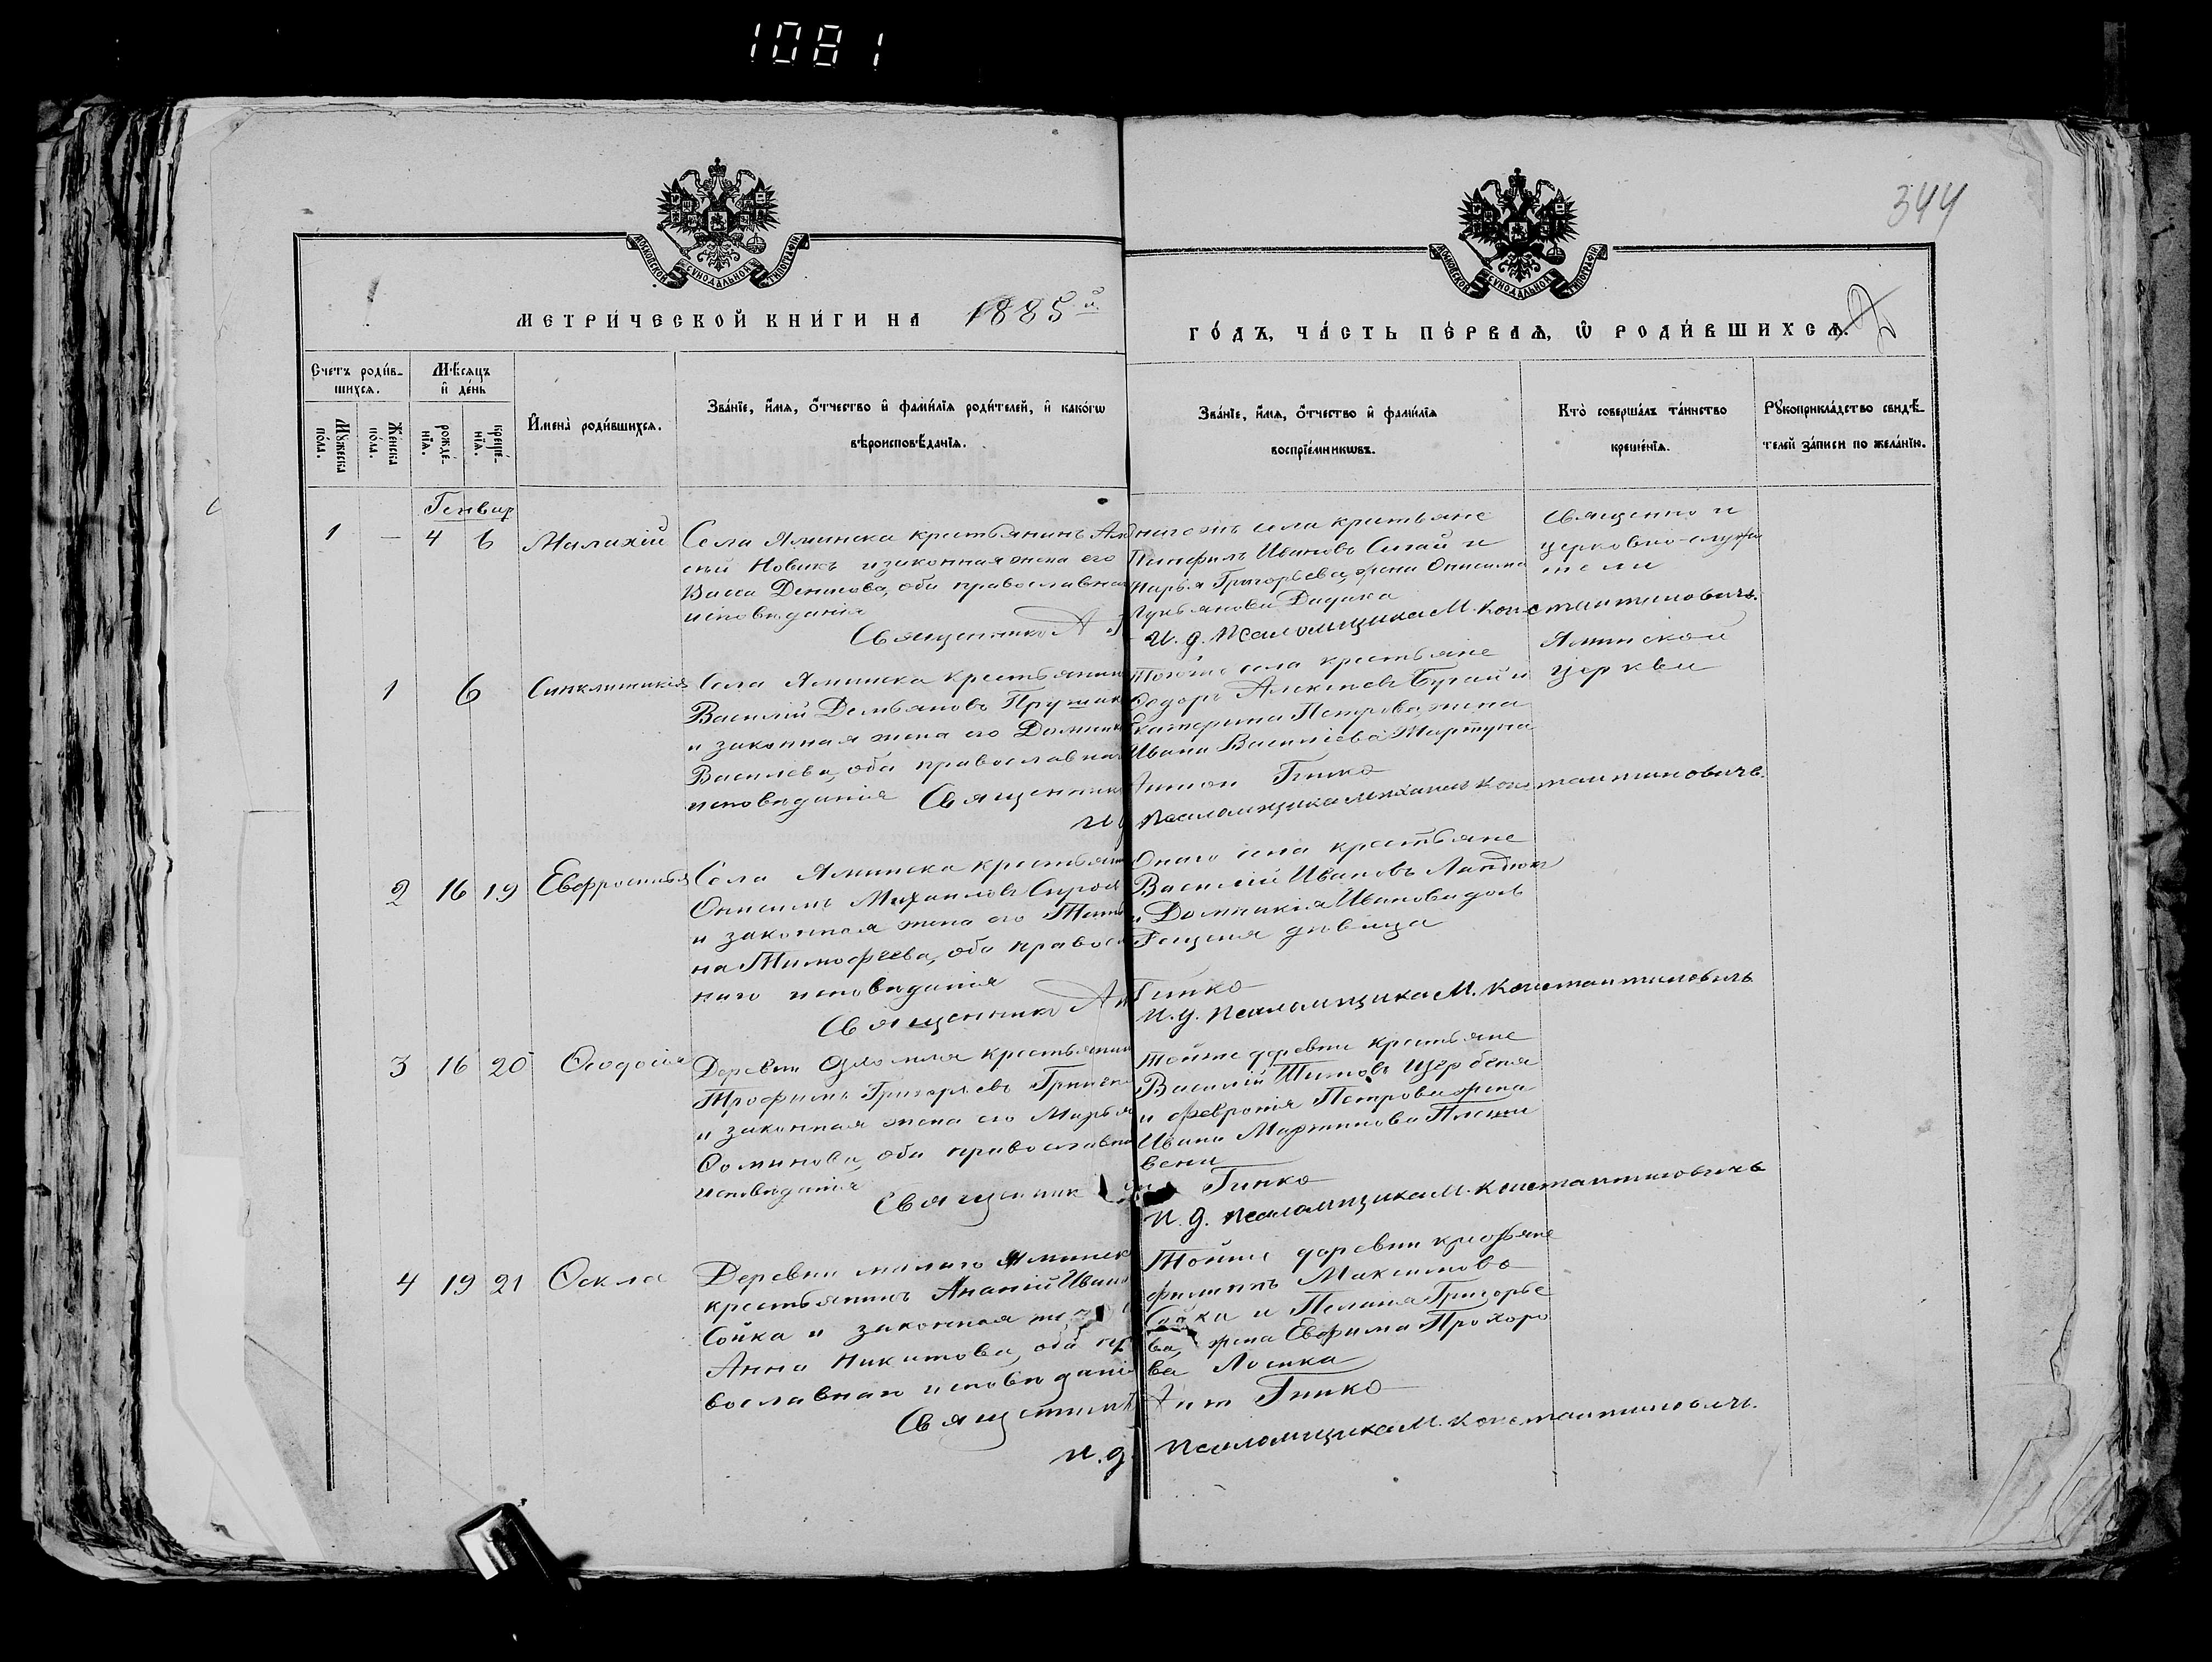 1081
344
МОСКОВСКОЙ СУНОДАЛЬНОЙ ТИПОГРАФІИ
МОСКОВСКОЙ СУНОДАЛЬНОЙ ТИПОГРАФІИ
МЕТРИ́ЧЕСКОЙ КНИ́ГИ НА 1885й
ГО́ДЪ, ЧА́СТЬ ПЕ́РВАѦ, Ѡ РОДИ́ВШИХСѦ.
Счетъ роди́в-
шихсѧ.
Мѣ́сѧцъ
и҆ де́нь
Мꙋ́жеска
по́ла.
Же́нска
по́ла.
рожде́-
нїѧ.
креще́-
нїѧ.
И҆мена̀ роди́вшихсѧ.
Зва́нїе, и҆́мѧ, ѻ҆́тчество и҆ фами́лїѧ роди́телей, и҆ како́гѡ
вѣроисповѣ́данїѧ.
Зва́нїе, и҆́мѧ, ѻ҆́тчество и҆ фами́лїѧ
воспрїе́мникѡвъ.
Кто̀ соверша́лъ та́инство
креще́нїѧ.
Рꙋкоприкла́дство свидѣ́-
телей за́писи по жела́нїю.
Генвар
1 — 4 6 Малахій
Села Яминска крестьянинъ
сій Новикъ и законная жена его
Васса Денисова, оба православна
исповѣданія
Священникъ А
села крестьяне
Панфилъ Ивановъ и
Марья Григорьева, жена Онисима
Лукьянова Дадика
И. д. Псаломщика М. Константиновичъ.
Священно и
церковно-служи
тели
Яминской
церкви
1 6 Синклитикія
Села Яминска крестьянин
Василій Демьяновъ
и законная жена его Домник
Васильева, оба православна
исповѣданія Священник
Тогоже села крестьяне
Ѳедоръ Алексѣевъ Бугай и
Екатерина Петрова, жена
Ивана Васильева
Антон Гинко
И д Псаломщика Михаилъ Константиновичъ.
2 16 19 Евфросинія
Села Яминска крестьян
Онисимъ Михаиловъ
и законная жена его Татья
на Тимофеева, оба правосл
наго исповѣданія
Священникъ Ан Гинко
Онаго села крестьяне
Василій Ивановъ
и Домникія Иванова
дѣвица
И. д. Псаломщика М. Константиновичъ
3 16 20 Ѳеодосія
Деревни крестьянин
Трофимъ Григорьевъ
и законная жена его Марья
Ѳомина, оба православна
исповѣданія
Священник Гинко
Тойже деревни крестьяне
Василій Титовъ Щербеня
и Февронія Петрова жена
Ивана Мартинова
И. д. Псаломщика М. Константиновичъ
4 19 21 Ѳекла
Деревни малаго Яминск
крестьянинъ Ананій Иван
Сойка и законная же
Анна Никитова, оба пр
вославнаго исповѣданія
Священник Ант Гинко
Тойже деревни крестьяне
Филиппъ Максимовъ
Сойка и Пелагія Григорье
ва, жена Евфима Прохоро
ва Лосика
И. д. Псаломщика М. Константиновичъ.